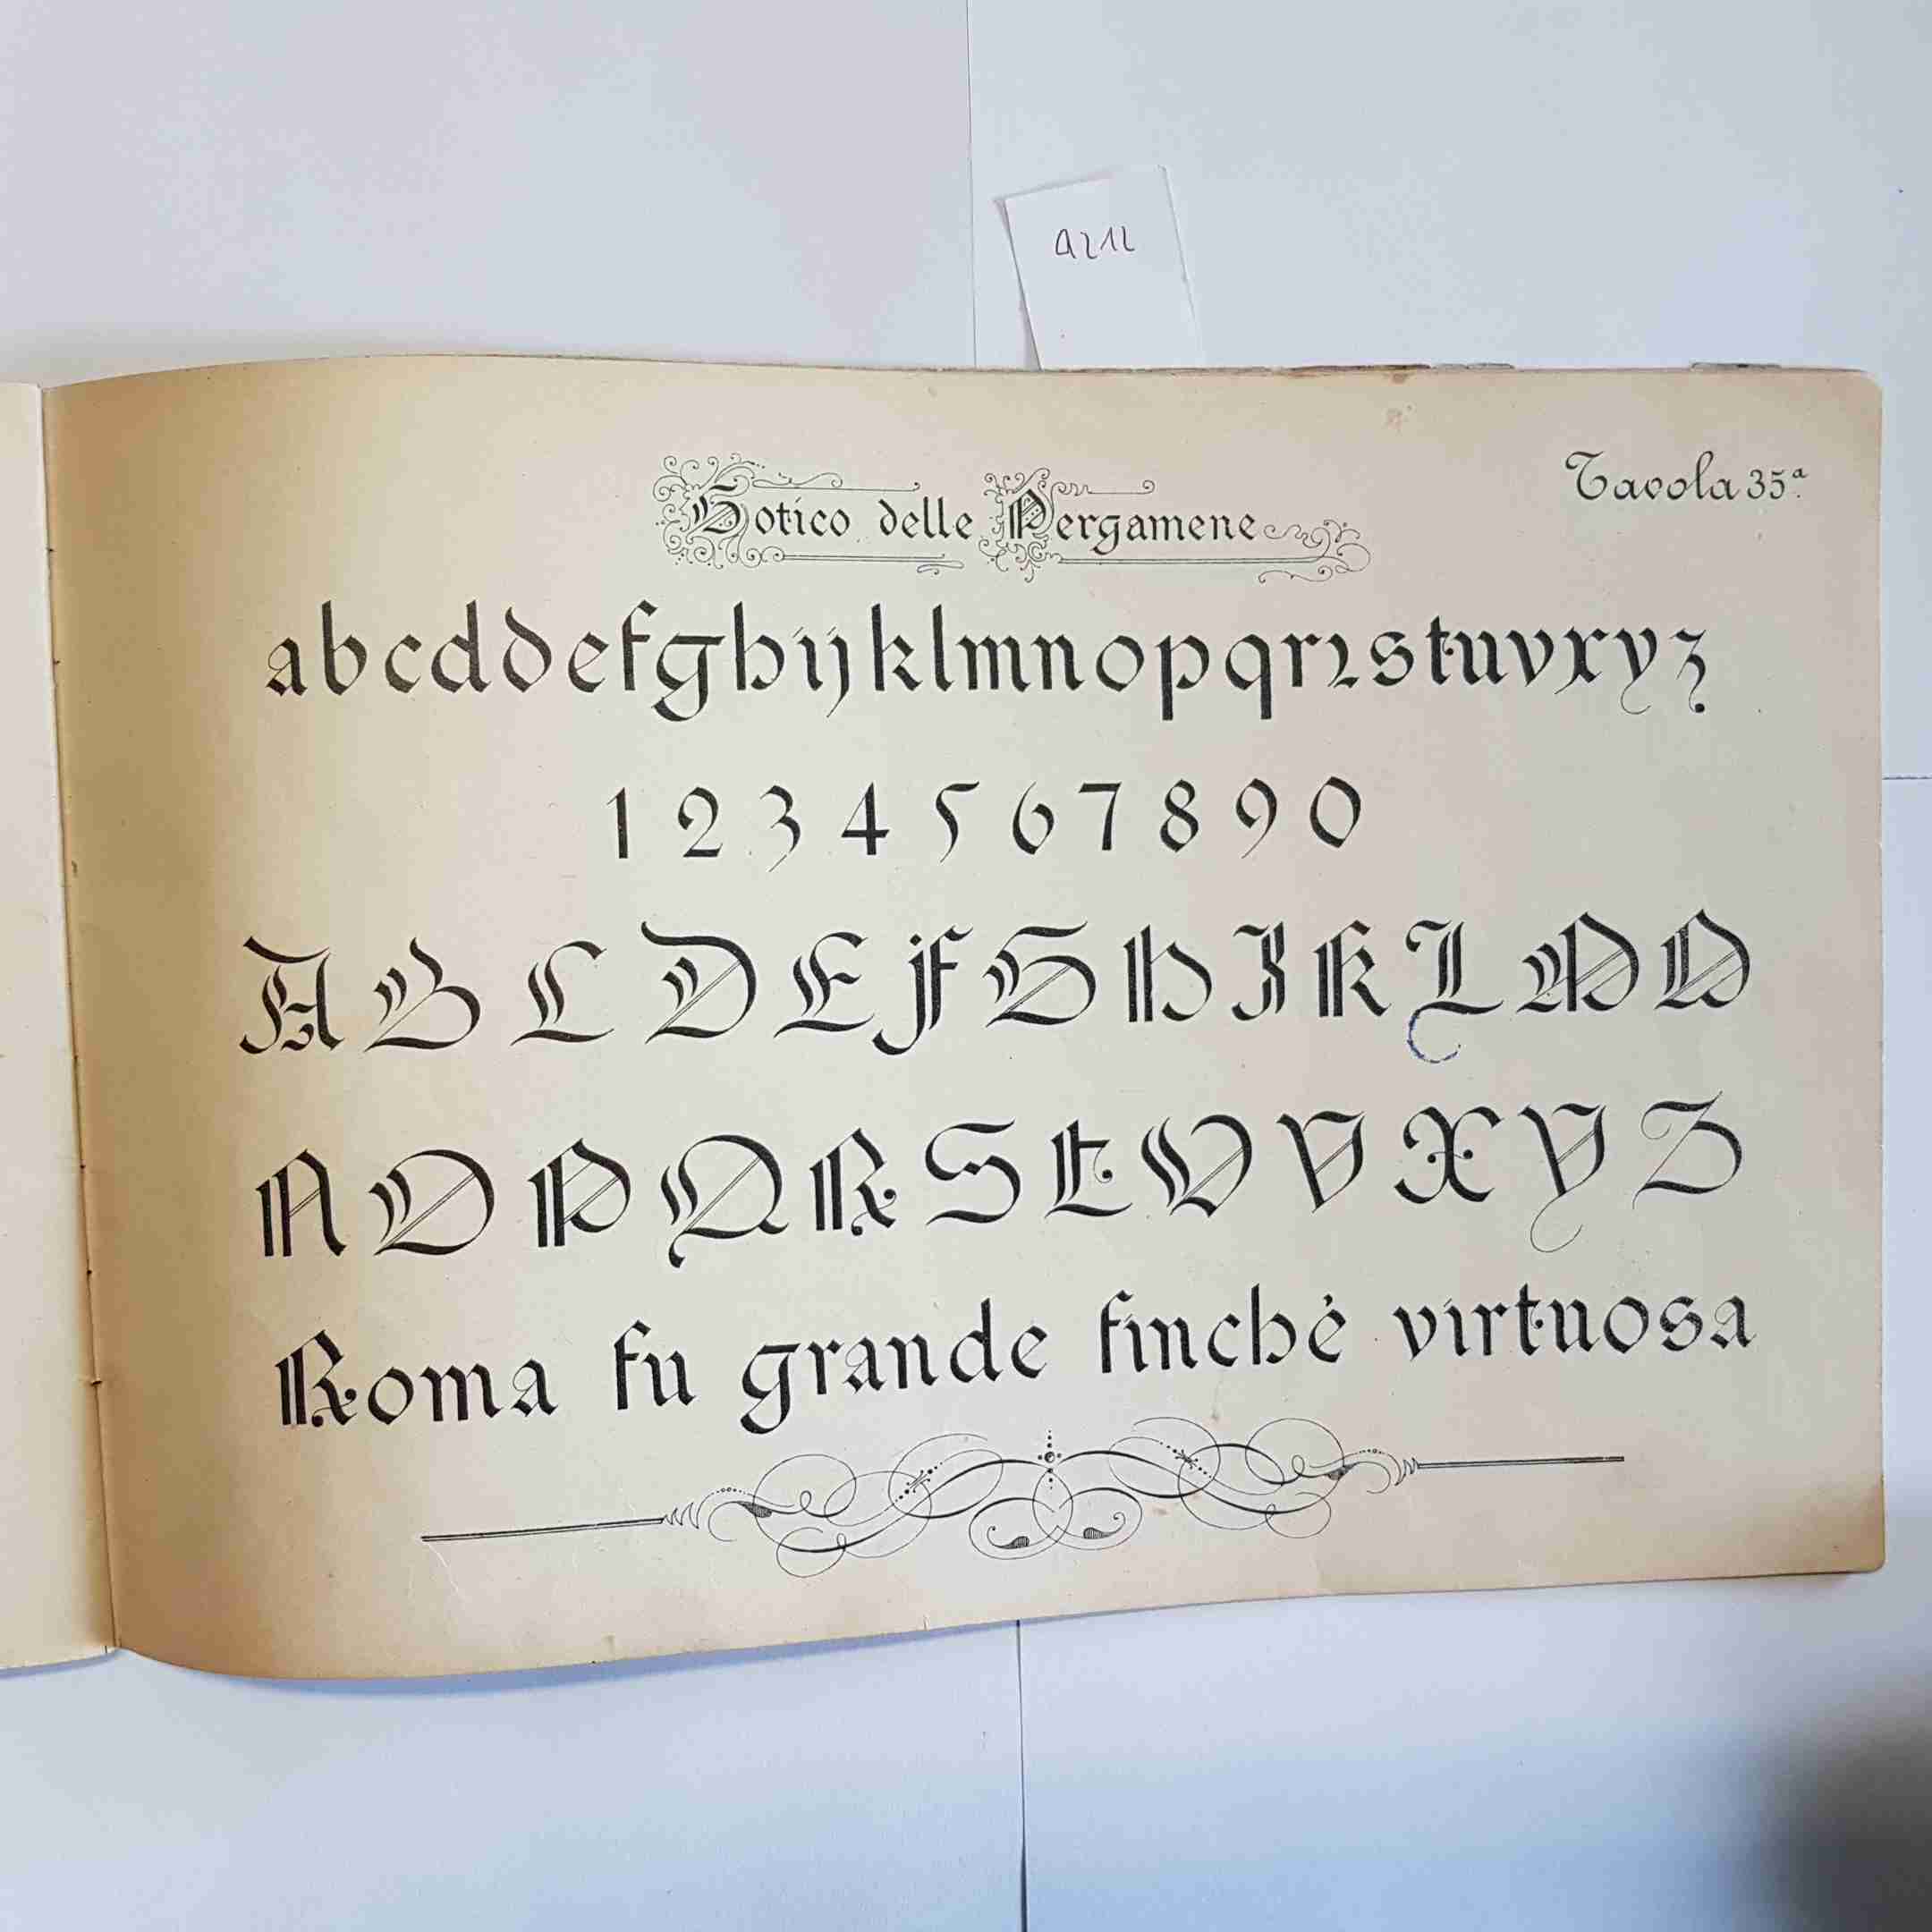 a212
Tavola 35ª.
Gotico delle Pergamene
abcddefghijklmnopqrꝛstuvxyz
1 2 3 4 5 6 7 8 9 0
A B C D E F G H I K L M M
N O P Q R S T U V X Y Z
Roma fu grande finchè virtuosa